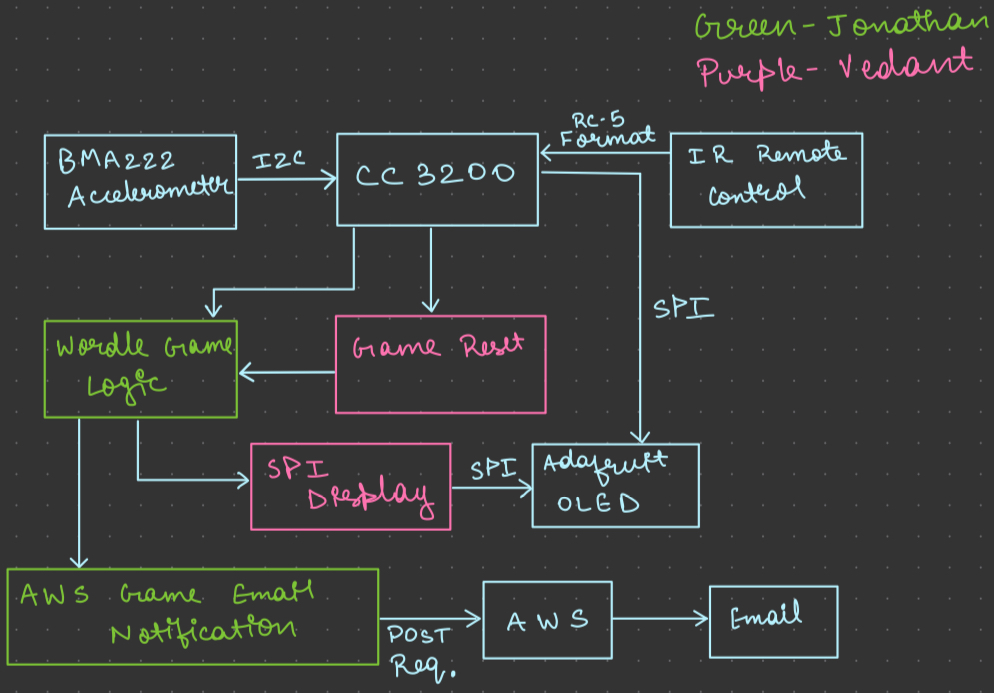 Green - Jonathan
Purple - Vedant
RC-5
Format
BMA222
Accelerometer
I2C
CC3200
IR Remote
Control
SPI
Wordle Game
Logic
Game Reset
SPI
Display
SPI
Adafruit
OLED
AWS Game Email
Notification
POST
Req.
AWS
Email